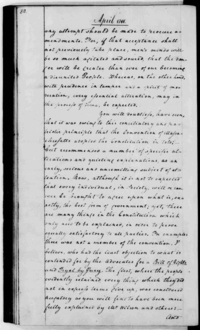 April 1788
any attempt should be made to receive a-
mendments. For, if that acceptance shall
not previously take place, men's minds will
be so much agitated and soured, that the dan-
ger will be greater than ever of our becoming
a disunited People. Whereas, on the other hand,
with prudence in temper and a spirit of mod-
eration, every essential alteration, may in
the process of time, be expected.
You will doubtless, have seen,
that it was owing to this conciliatory and pa-
triotic principle that the Convention of Massa-
chusetts adopted the constitution in toto;
but recommended a number of specific al-
terations and quieting explanations, as an
early, serious and unremitting subject of at-
tention. Now, although it is not to be expected
that every individual, in Society, will or can
ever be brought to agree upon what is, ex-
actly, the best form of government; yet, there
are many things in the Constitution which
only need to be explained, in order to prove
equally satisfactory to all parties. For exam-
ple: there was not a member of the convention, I
believe, who had the least objection to what is
contended for by the Advocates for a Bill of Rights
and Tryal by Jury. The first, where the people
evidently retained every thing which they did
not in express terms give up, was considered
nugatory as you will find to have been more
fully explained by Mr Wilson and others: